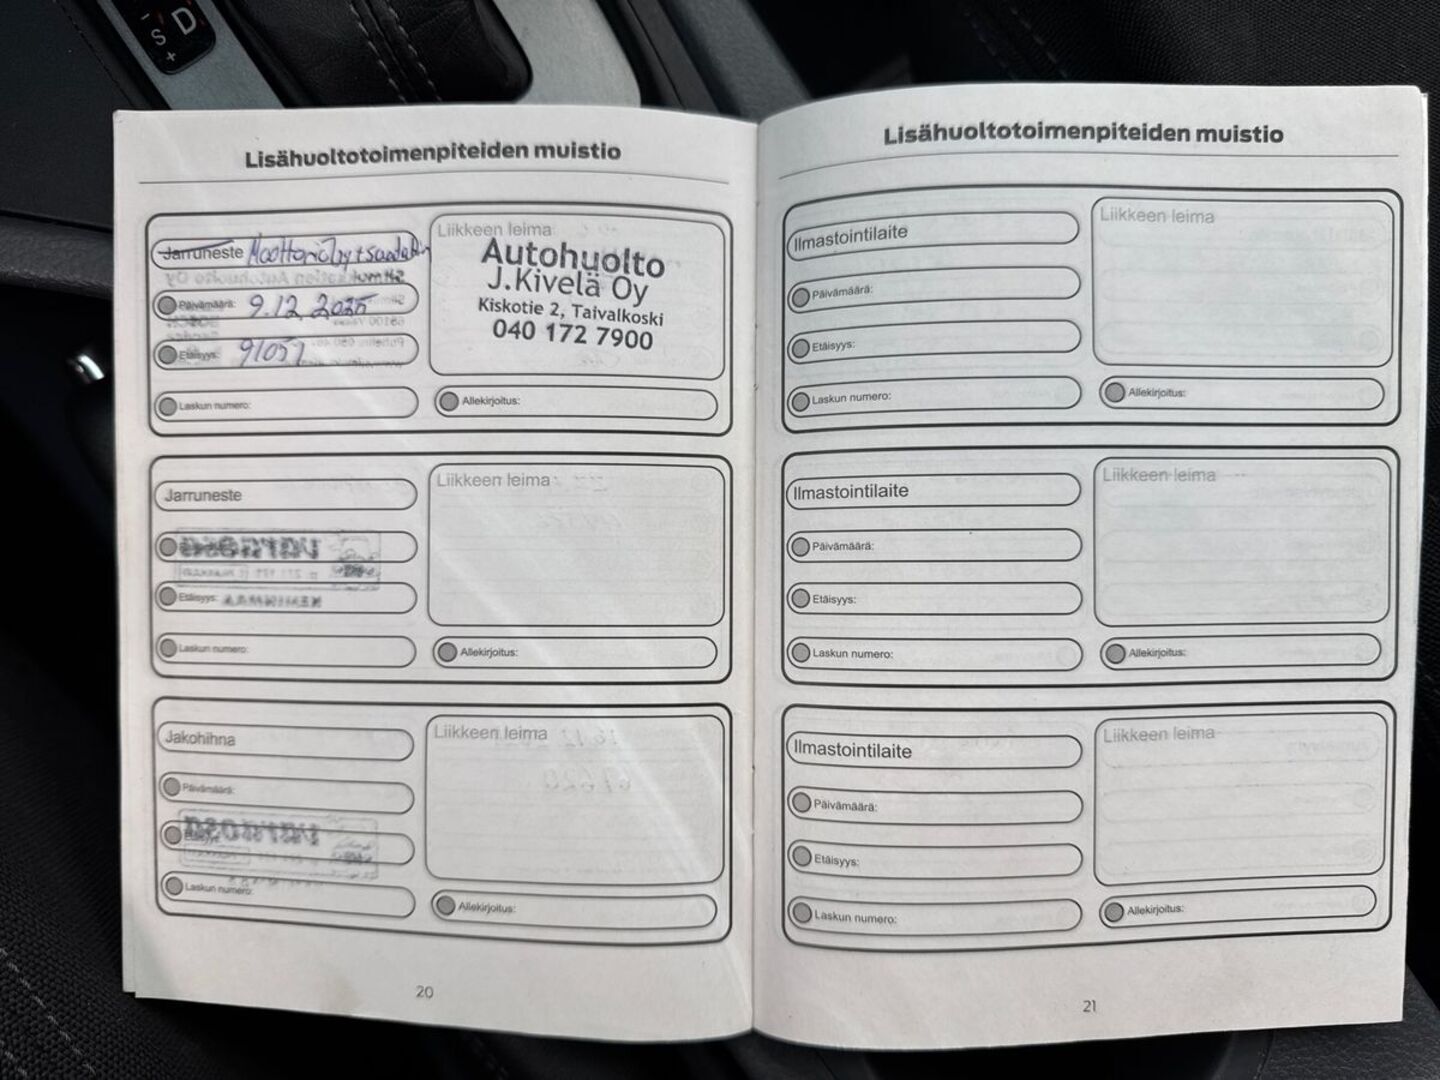 S
D
+
Lisähuoltotoimenpiteiden muistio
Jarruneste Moottoriöljy+suodatin
Päivämäärä: 9.12.2025
Etäisyys: 91057
Laskun numero:
Liikkeen leima
Autohuolto
J.Kivelä Oy
Kiskotie 2, Taivalkoski
040 172 7900
Allekirjoitus:
Jarruneste
Etäisyys:
Laskun numero:
Liikkeen leima
Allekirjoitus:
Jakohihna
Päivämäärä:
Etäisyys:
Laskun numero:
Liikkeen leima
Allekirjoitus:
20
Lisähuoltotoimenpiteiden muistio
Ilmastointilaite
Päivämäärä:
Etäisyys:
Laskun numero:
Liikkeen leima
Allekirjoitus:
Ilmastointilaite
Päivämäärä:
Etäisyys:
Laskun numero:
Liikkeen leima
Allekirjoitus:
Ilmastointilaite
Päivämäärä:
Etäisyys:
Laskun numero:
Liikkeen leima
Allekirjoitus:
21